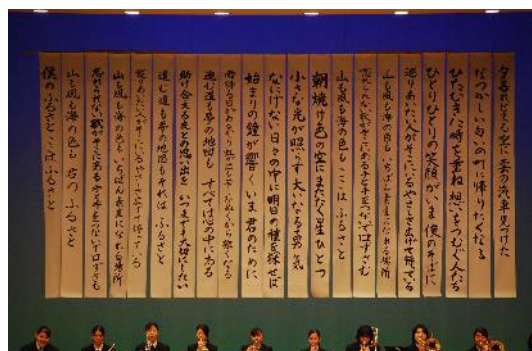 夕暮れせまる空に雲の汽車見つけた
なつかしい匂いの町に帰りたくなる
ひたむきに時を重ね想いをつむぐ人たち
ひとりひとりの笑顔がいま僕のそばに
巡りあいたい人がそこにいるやさしさ広げて待っている
山も風も海の色もいちばん素直になれる場所
忘れられない歌がそこにある手と手をつないで口ずさむ
山も風も海の色も ここはふるさと
朝焼け色の空に またたく星ひとつ
小さな光が照らす 大いなる勇気
なにげない日々の中に明日の種を探せば
始まりの鐘が響く いま君のために
雨降る日があるから虹が出る 苦しみぬくから強くなる
進む道も夢の地図も すべては心の中にある
助け合える友との思い出を いつまでも大切にしたい
進む道も夢の地図も それはふるさと
巡りあいたい人がそこにいる やさしさ広げて待っている
山も風も海の色も いちばん素直になれる場所
忘れられない歌がそこにある手と手をつないで口ずさむ
山も風も海の色も 君のふるさと
僕のふるさと ここはふるさと